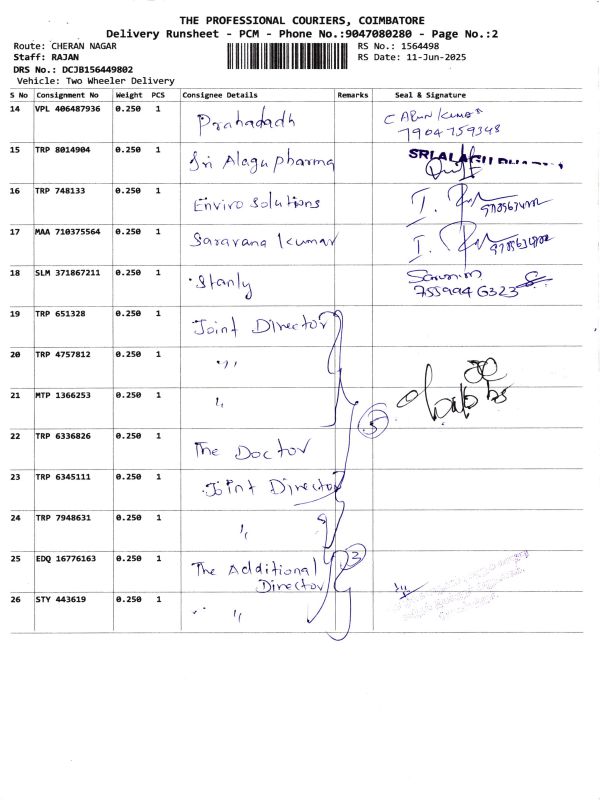 THE PROFESSIONAL COURIERS, COIMBATORE
Delivery Runsheet - PCM - Phone No.:9047080280 - Page No.:2
Route: CHERAN NAGAR
RS No.: 1564498
Staff: RAJAN
RS Date: 11-Jun-2025
DRS No.: DCJB156449802
Vehicle: Two Wheeler Delivery
S No Consignment No Weight PCS Consignee Details Remarks Seal & Signature
14 VPL 406487936 0.250 1 Prahadadh C ARUN KUMAR
7904759348
15 TRP 8014904 0.250 1 Sri Alagu pharma SRI ALAGU PHARMA
16 TRP 748133 0.250 1 Enviro Solutions I.
17 MAA 710375564 0.250 1 Saravana kumar I.
18 SLM 371867211 0.250 1 Stanly
755994 6323
19 TRP 651328 0.250 1 Joint Director
20 TRP 4757812 0.250 1 "
21 MTP 1366253 0.250 1 "
5
22 TRP 6336826 0.250 1 The Doctor
23 TRP 6345111 0.250 1 Joint Director
24 TRP 7948631 0.250 1 "
25 EDQ 16776163 0.250 1 The Additional 3
Director
26 STY 443619 0.250 1 "